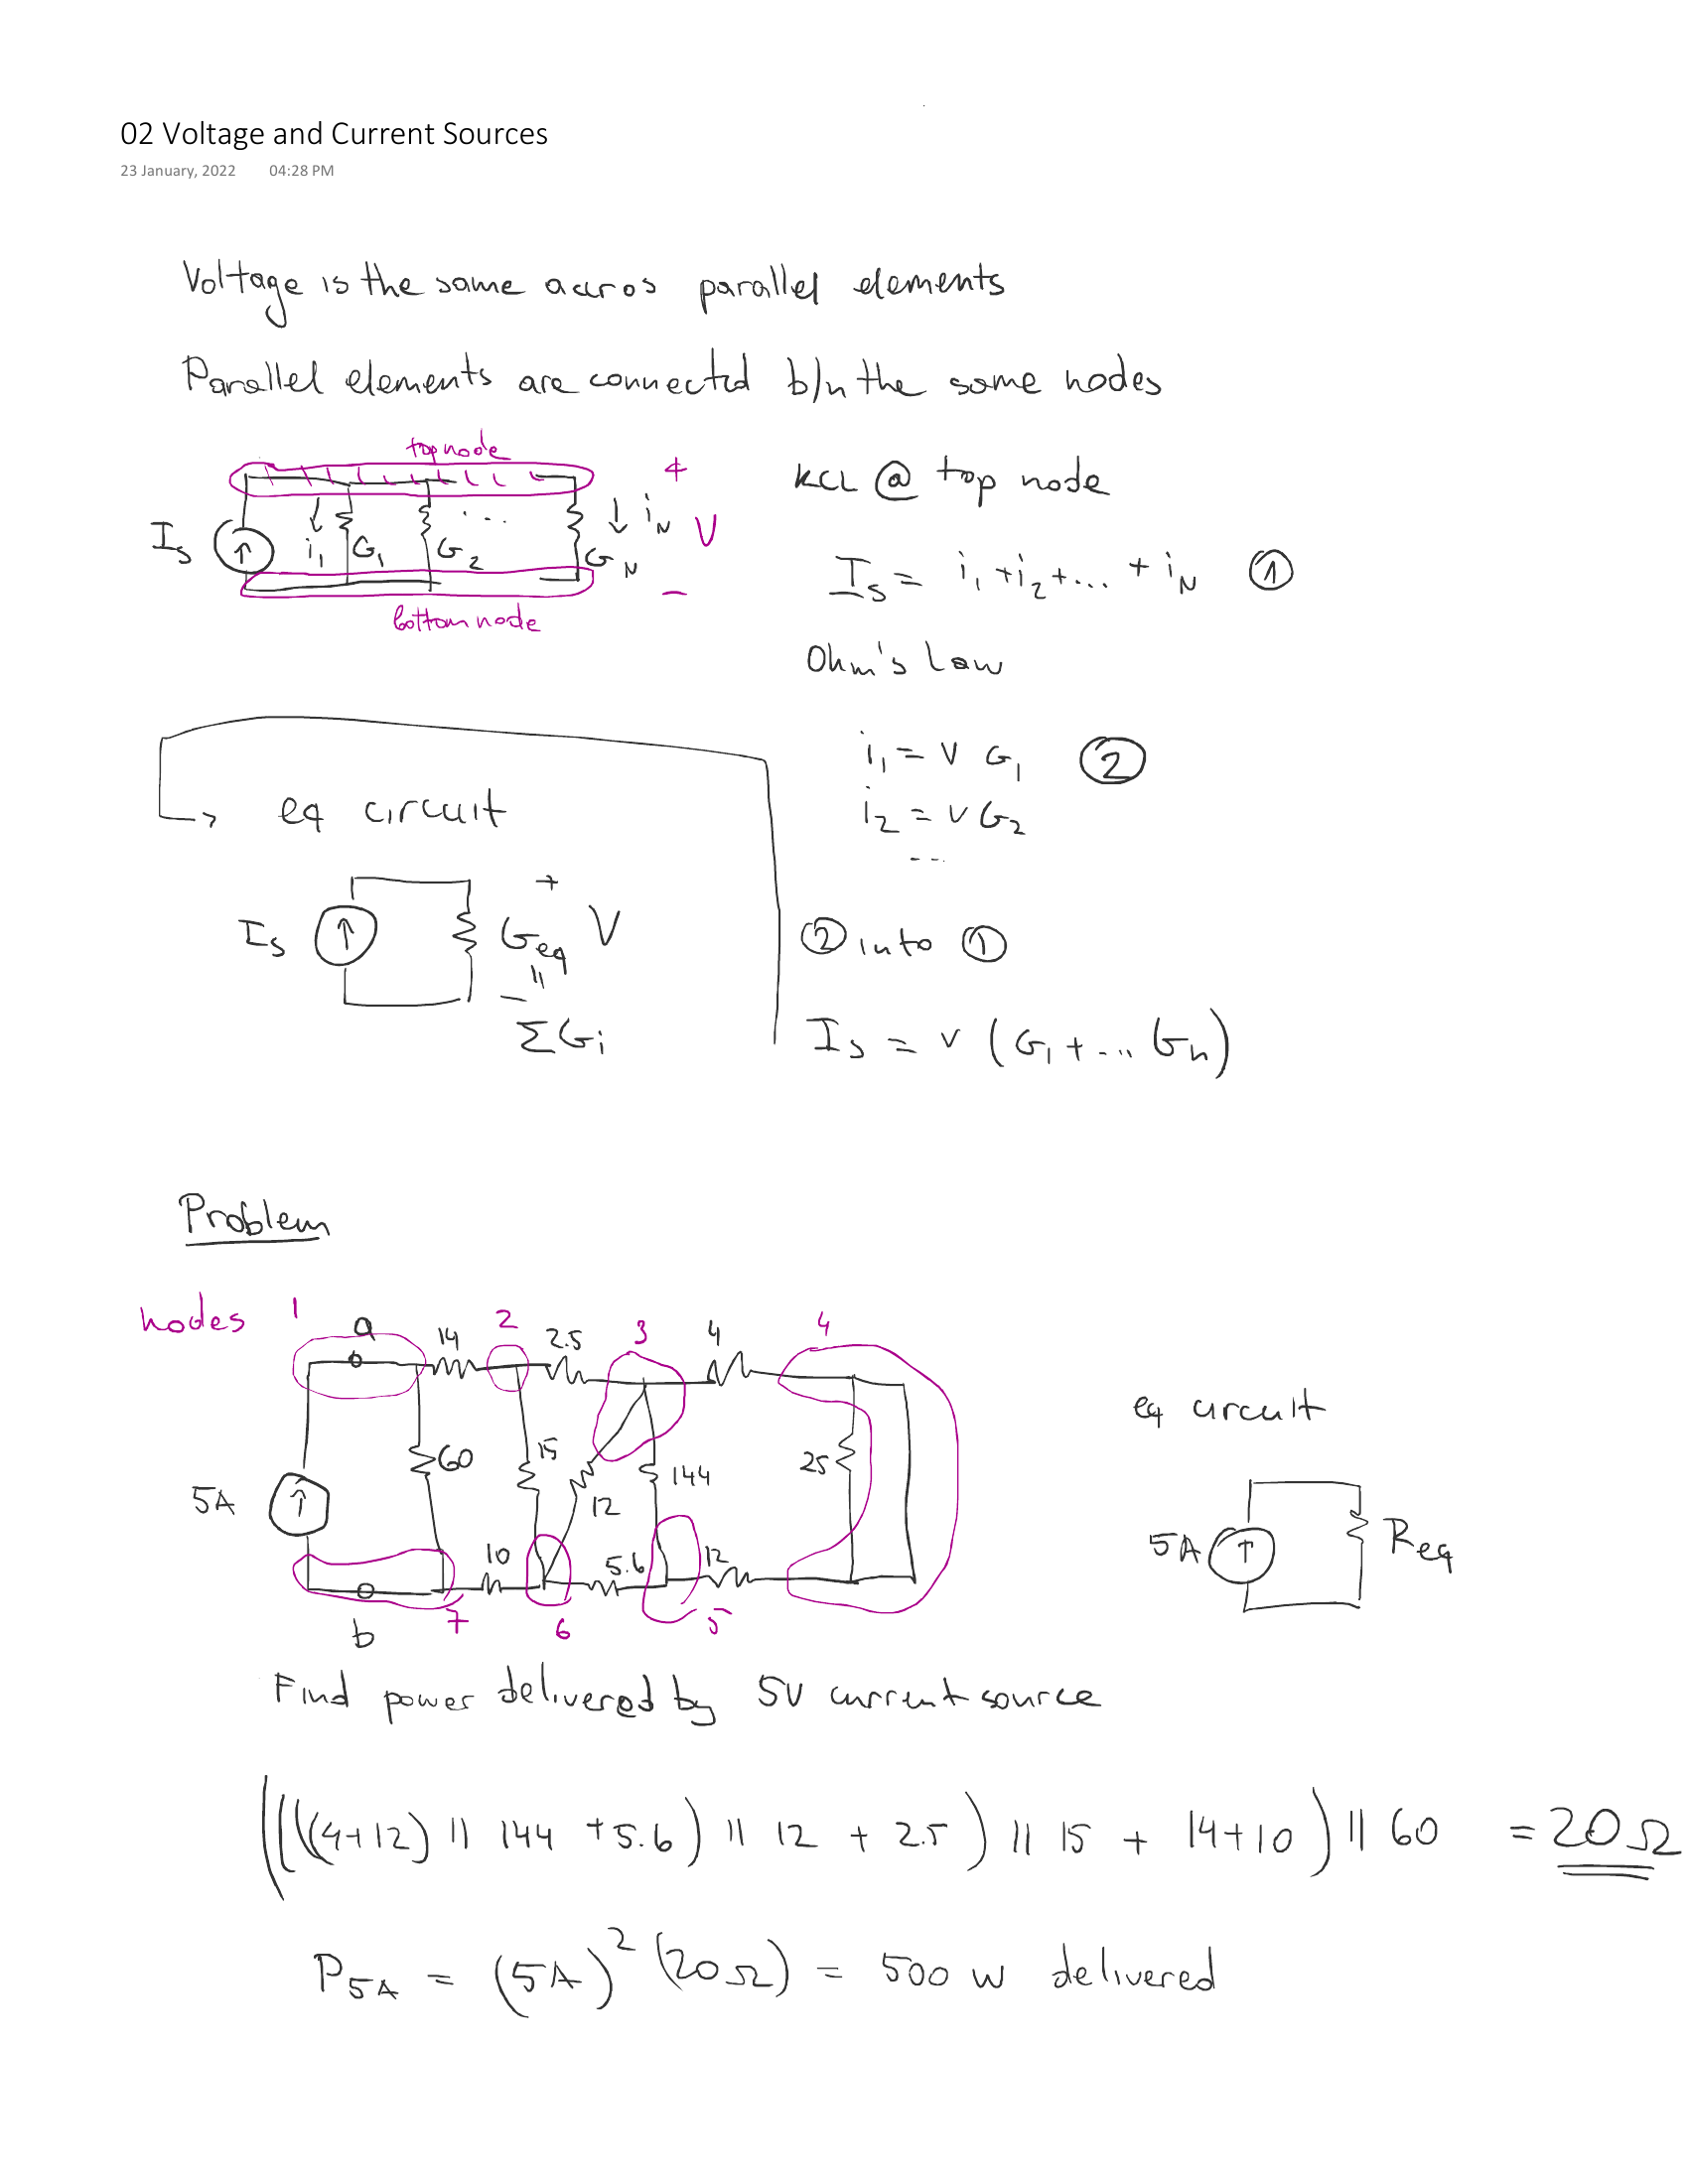 02 Voltage and Current Sources
23 January, 2022 04:28 PM
Voltage is the same accros parallel elements
Parallel elements are connected b/n the same nodes
top node
Is i1 G1 G2 ... GN iN + V -
bottom node
KCL @ top node
Is = i1 + i2 + ... + iN ①
Ohm's Law
i1 = V G1 ②
i2 = V G2
...
② into ①
Is = V (G1 + ... Gn)
eq circuit
Is Geq + V -
=
ΣGi
Problem
nodes 1 a 14 2 2.5 3 4 4
60 15 12 144 25
5A
10 5.6 12
b 7 6 5
eq circuit
5A Req
Find power delivered by 5V current source
((((4+12) || 144 + 5.6) || 12 + 2.5) || 15 + 14+10) || 60 = 20Ω
P5A = (5A)² (20Ω) = 500 W delivered